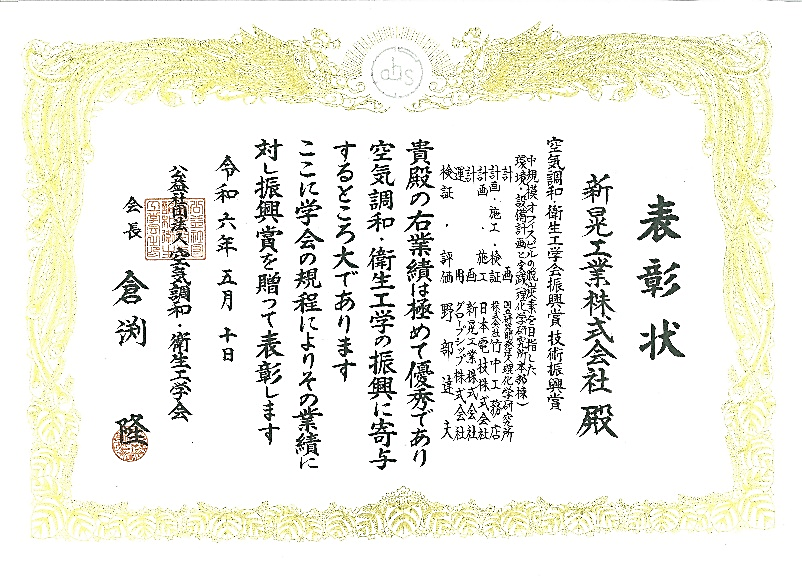 ahs
表彰状
新晃工業株式会社 殿
空気調和・衛生工学会振興賞技術振興賞
中規模オフィスビルの脱炭素を目指した
環境・設備計画と実践(理化学研究所本部棟)
計画 国立研究開発法人理化学研究所
計画・施工・検証 株式会社竹中工務店
計画・施工 日本電技株式会社
計画 新晃工業株式会社
運用 グローブシップ株式会社
検証・評価 野部達夫
貴殿の右業績は極めて優秀であり
空気調和・衛生工学の振興に寄与
するところ大であります
ここに学会の規程によりその業績に
対し振興賞を贈って表彰します
令和六年五月十日
公益社団法人空気調和・衛生工学会
会長 倉渕 隆